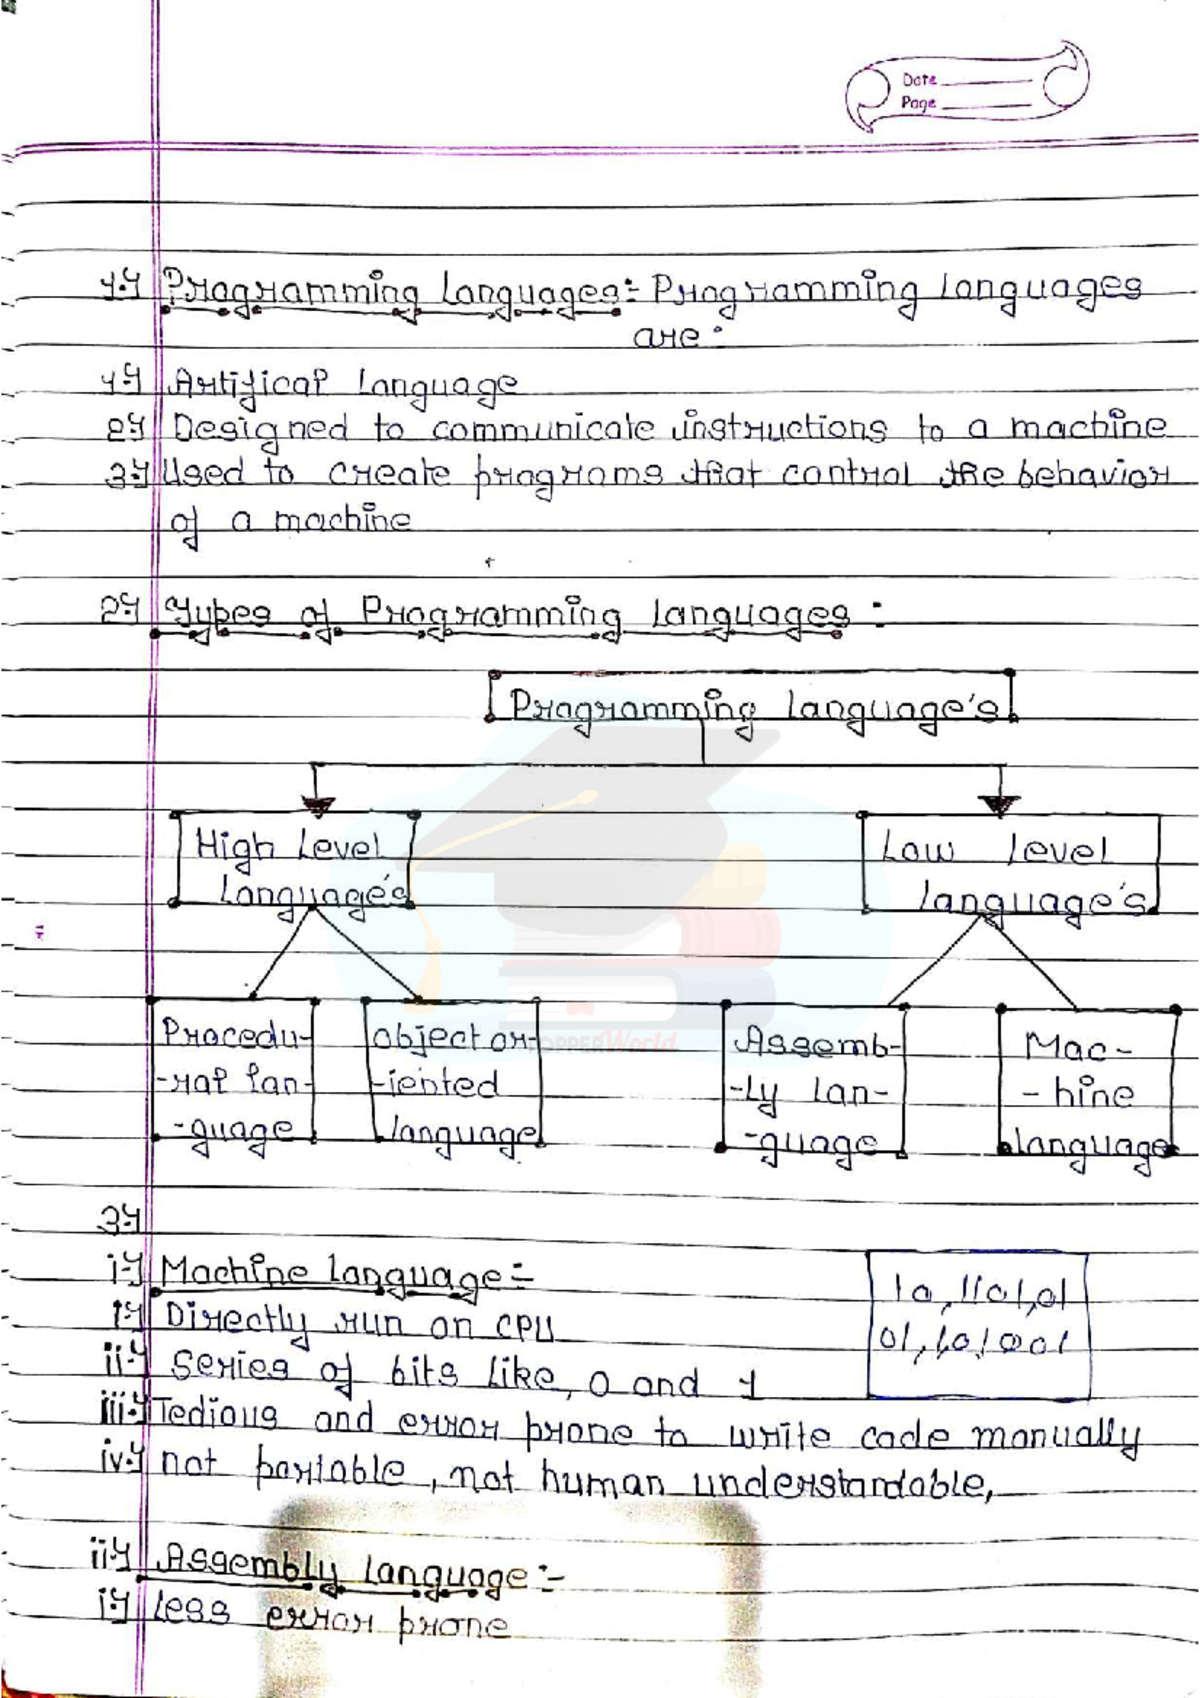 Date
Page
1) Programming Languages:- Programming Languages
are:
1) Artifical Language
2) Designed to communicate instructions to a machine
3) Used to create programs that control the behavior
of a machine
2) Types of Programming Languages :
Programming Language's
High Level
Language's
Low level
language's
Procedu-
-ral lan-
-guage
object or-
-iented
language
Assemb-
-ly lan-
-guage
Mac-
-hine
language
TOPPERWorld
3)
i) Machine language:-
i) Directly run on CPU
ii) Series of bits like, 0 and 1
10,1101,01
01,10,1001
iii) Tedious and error prone to write code manually
iv) not portable, not human understandable,
ii) Assembly Language:-
i) Less error prone